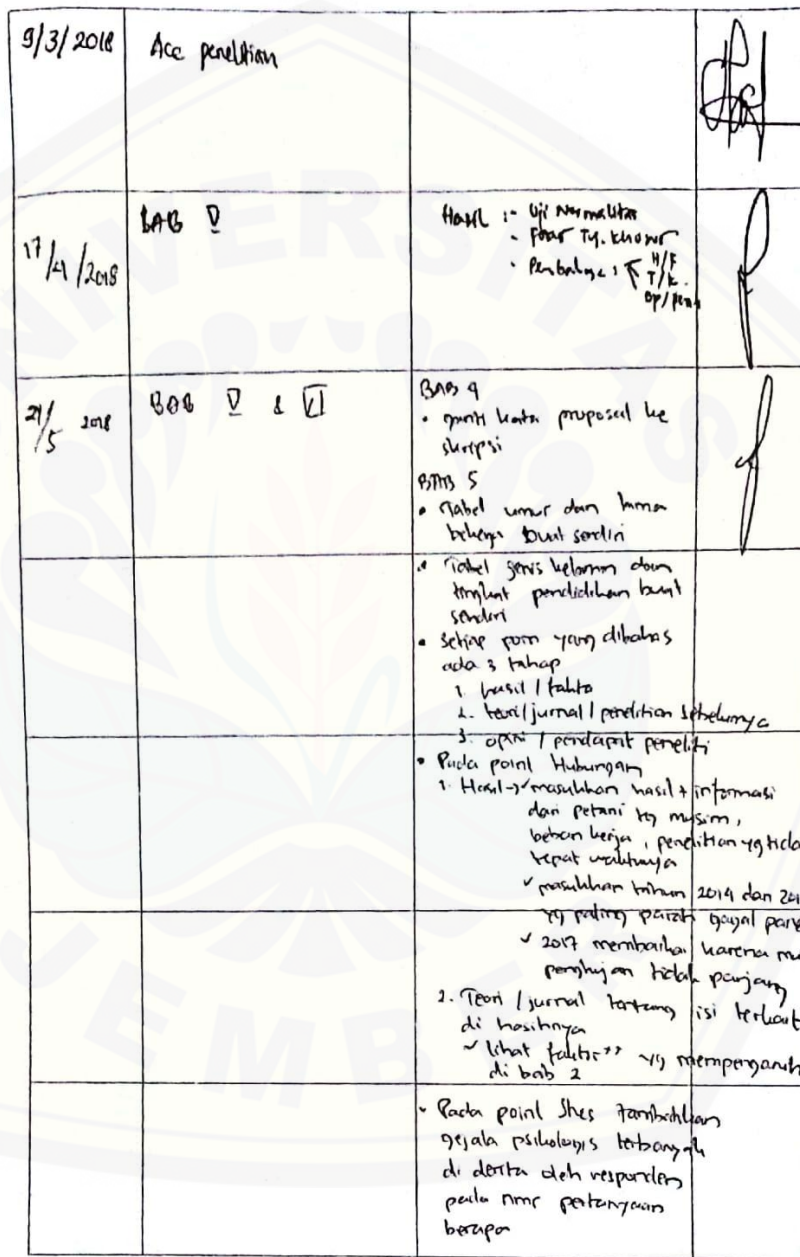 UNIVERSITAS
JEMBER
9/3/2018
Acc penelitian
17/4/2018
BAB V
Hasil :- Uji Normalitas
- Tj. khusus
- Pembahas : H/F
T/k.
op/pen
21/5 2018
BAB V & VI
BAB 4
• ganti kata proposal ke
skripsi
BAB 5
• Tabel umur dan lama
bekerja buat sendiri
• Tabel jenis kelamin dan
tingkat pendidikan buat
sendiri
• Setiap poin yang dibahas
ada 3 tahap
1. hasil / fakta
2. teori/jurnal/penelitian sebelumnya
3. opini / pendapat peneliti
• Pada point Hubungan
1. Hasil → ✓ masukkan hasil + informasi
dari petani ttg musim,
beban kerja, penelitian yg tida
tepat waktunya
✓ masukkan tahun 2014 dan 20
yg paling parah gagal pane
✓ 2017 membaik karena mu
penghujan tidak panjang
2. Teori / jurnal tentang isi terkait
di hasilnya
✓ lihat faktor** yg mempengaruh
di bab 2
• Pada point Stres tambahkan
gejala psikologis terbanyak
di derita oleh responden
pada nmr pertanyaan
berapa